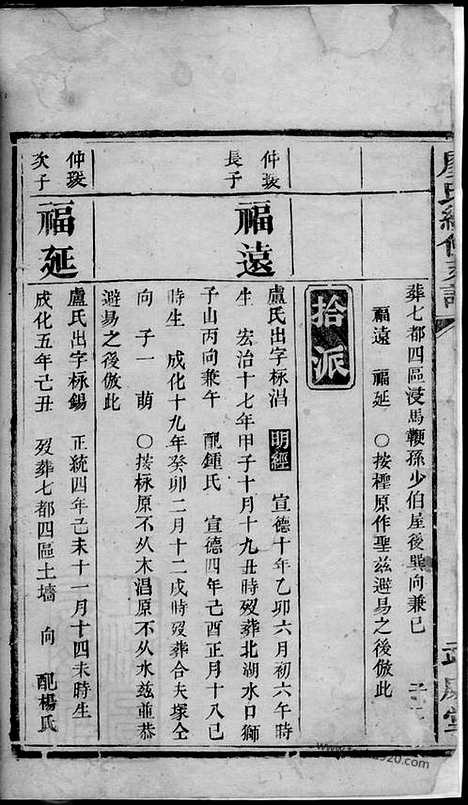 葬七都四區浸馬鞭孫少伯屋後巽向兼巳
福遠　福延　○按檉原作聖兹避易之後倣此
拾派
仲琰
長子
福遠
盧氏出字栐淐　明經　宣德十年乙卯六月初六午時
生　宏治十七年甲子十月十九丑時歿葬北湖水口獅
子山丙向兼午　配鍾氏　宣德四年己酉正月十八巳
時生　成化十九年癸卯二月十二戌時歿葬合夫塚仝
向　子一　萌　○按栐原不从木淐原不从水兹並恭
避易之後倣此
仲琰
次子
福延
盧氏出字栐錫　正統四年己未十一月十四未時生
成化五年己丑　歿葬七都四區土墻　向　配楊氏